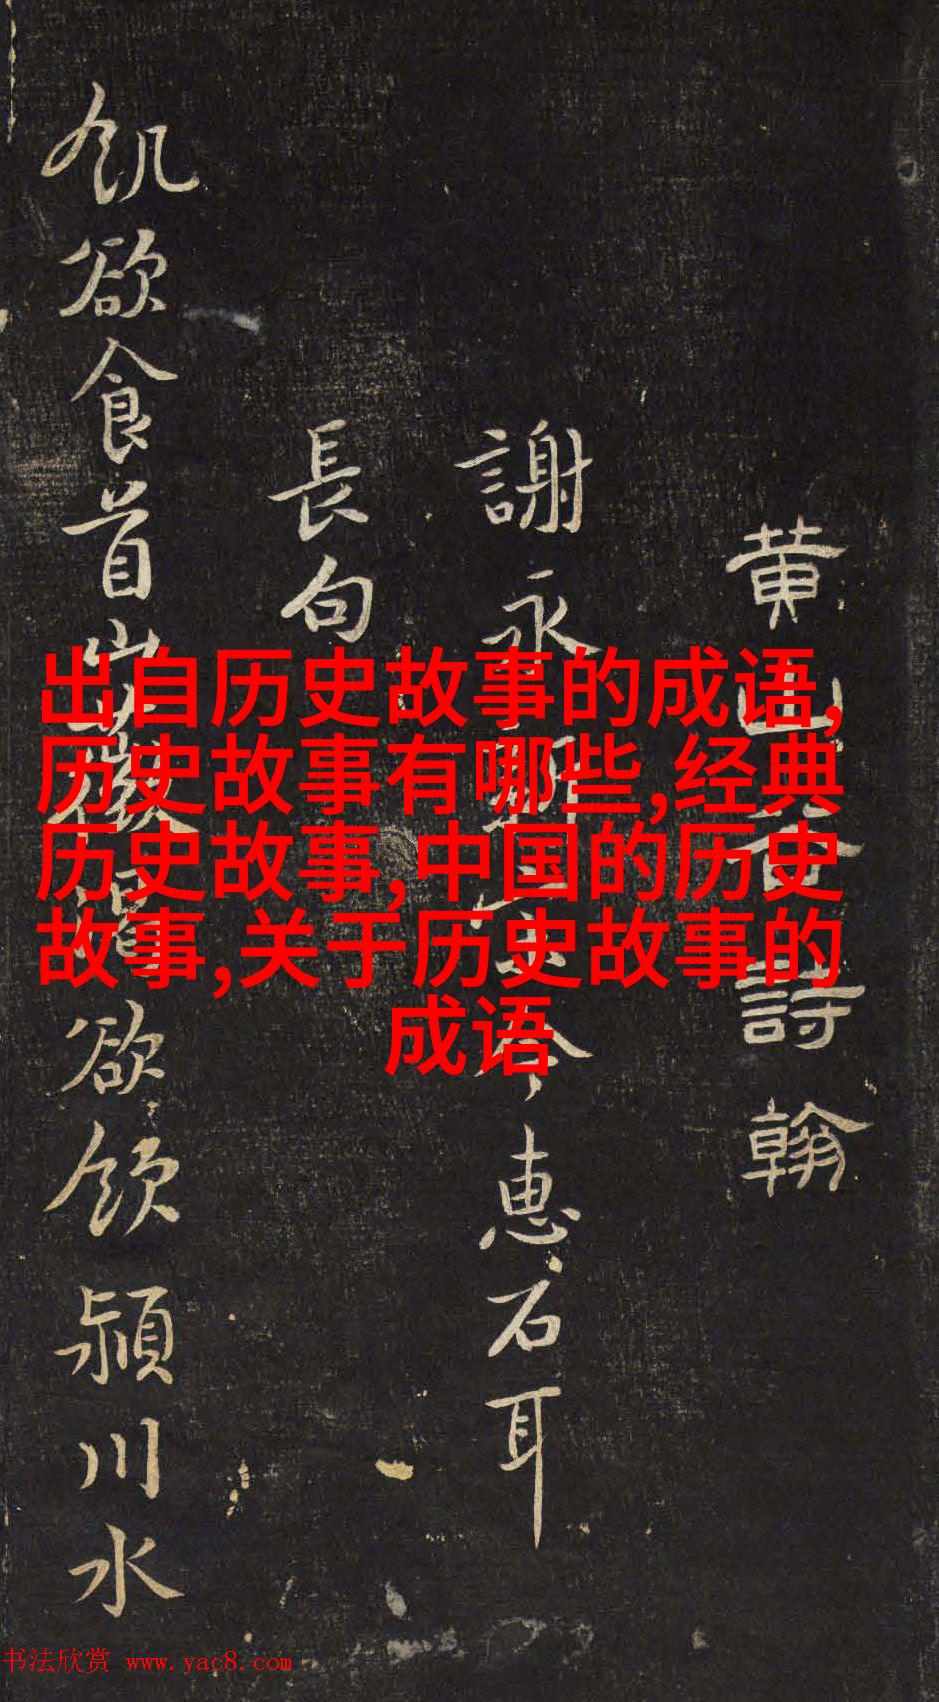 黄山谷詩翰
謝永
惠石耳
長句
飢欲食首山薇渴
欲飲潁川水
出自历史故事的成语,
历史故事有哪些,经典
历史故事,中国的历史
故事,关于历史故事的
成语
书法欣赏 www.yac8.com